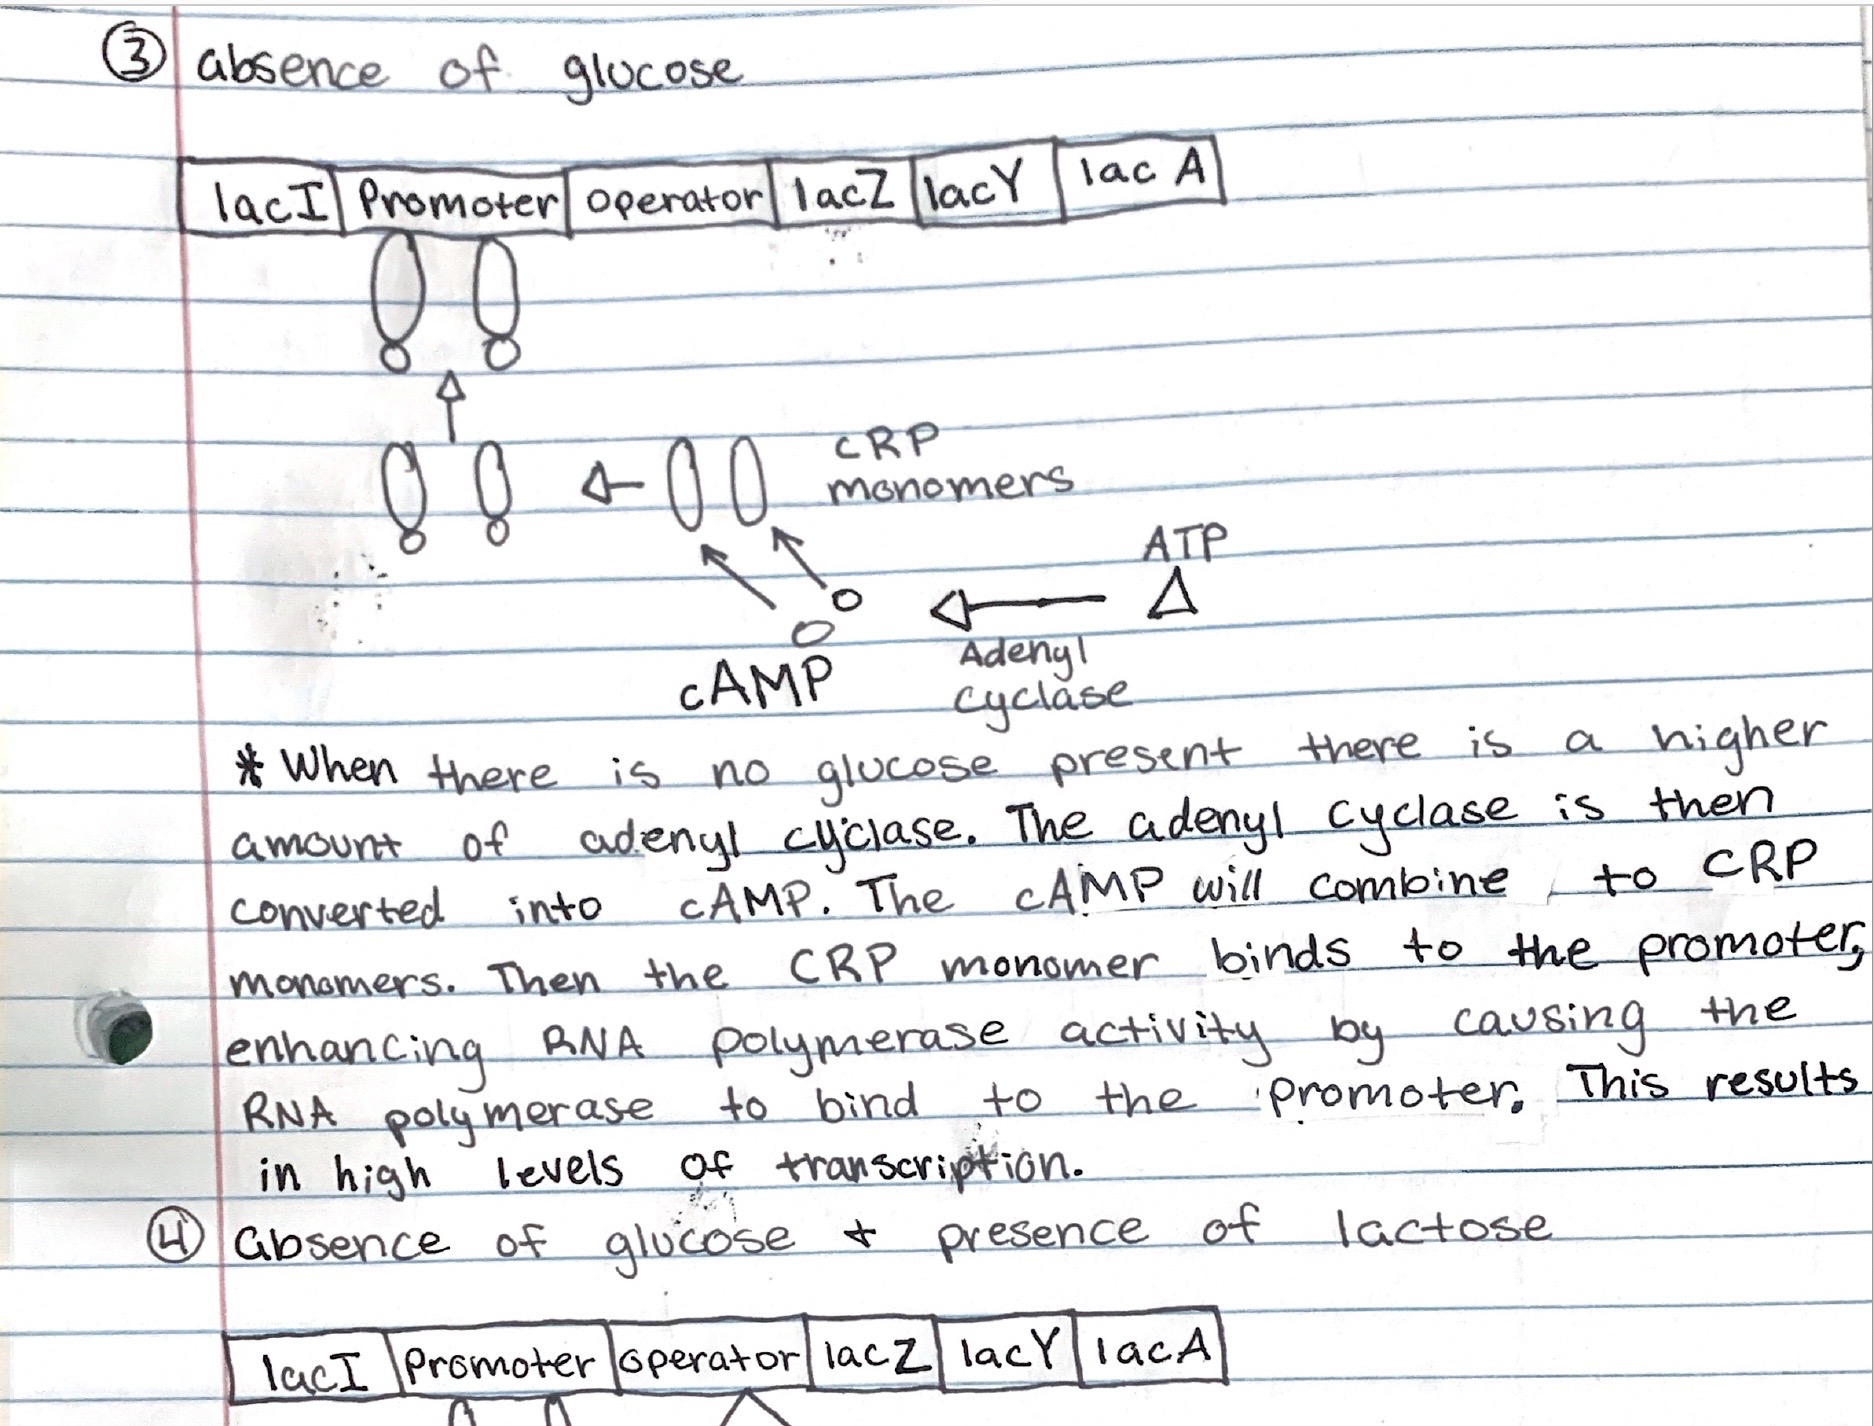 ③ absence of glucose
lacI Promoter operator lacZ lacY lac A
CRP
monomers
ATP
Adenyl
cyclase
cAMP
* When there is no glucose present there is a higher
amount of adenyl cyclase. The adenyl cyclase is then
converted into cAMP. The cAMP will combine to CRP
monomers. Then the CRP monomer binds to the promoter,
enhancing RNA polymerase activity by causing the
RNA polymerase to bind to the promoter. This results
in high levels of transcription.
④ absence of glucose + presence of lactose
lacI Promoter operator lacZ lacY lacA